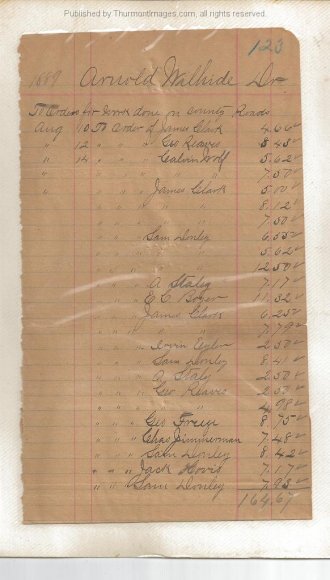 Published by ThurmontImages.com, all rights reserved.
123
1889 Arnold Walhide Dr
To Orders for work done on County Roads
Aug 10 To Order of James Clark 4.66
" 12 " " " Geo Reaves 8.45
" 14 " " " Calvin Wolf 5.62
" " " " " 7.50
" " " " James Clark 5.10
" " " " 8.12
" " " " 7.50
" " " Sam Donley 6.55
" " " " 5.62
" " " " 12.50
" " " A Staley 7.17
" " " E. C. Boyer 11.32
" " " James Clark 6.25
" " " " " 7.79
" " " Irvin Eyler 2.50
" " " Sam Donley 8.41
" " " A Staley 2.50
" " " Geo Reaves 2.50
" " " " " 4.98
" " " Geo 8.75
" " " Chas Zimmerman 7.48
" " " Sam Donley 8.42
" " " Jack Hovis 7.17
" " " Sam Donley 7.93
164.67